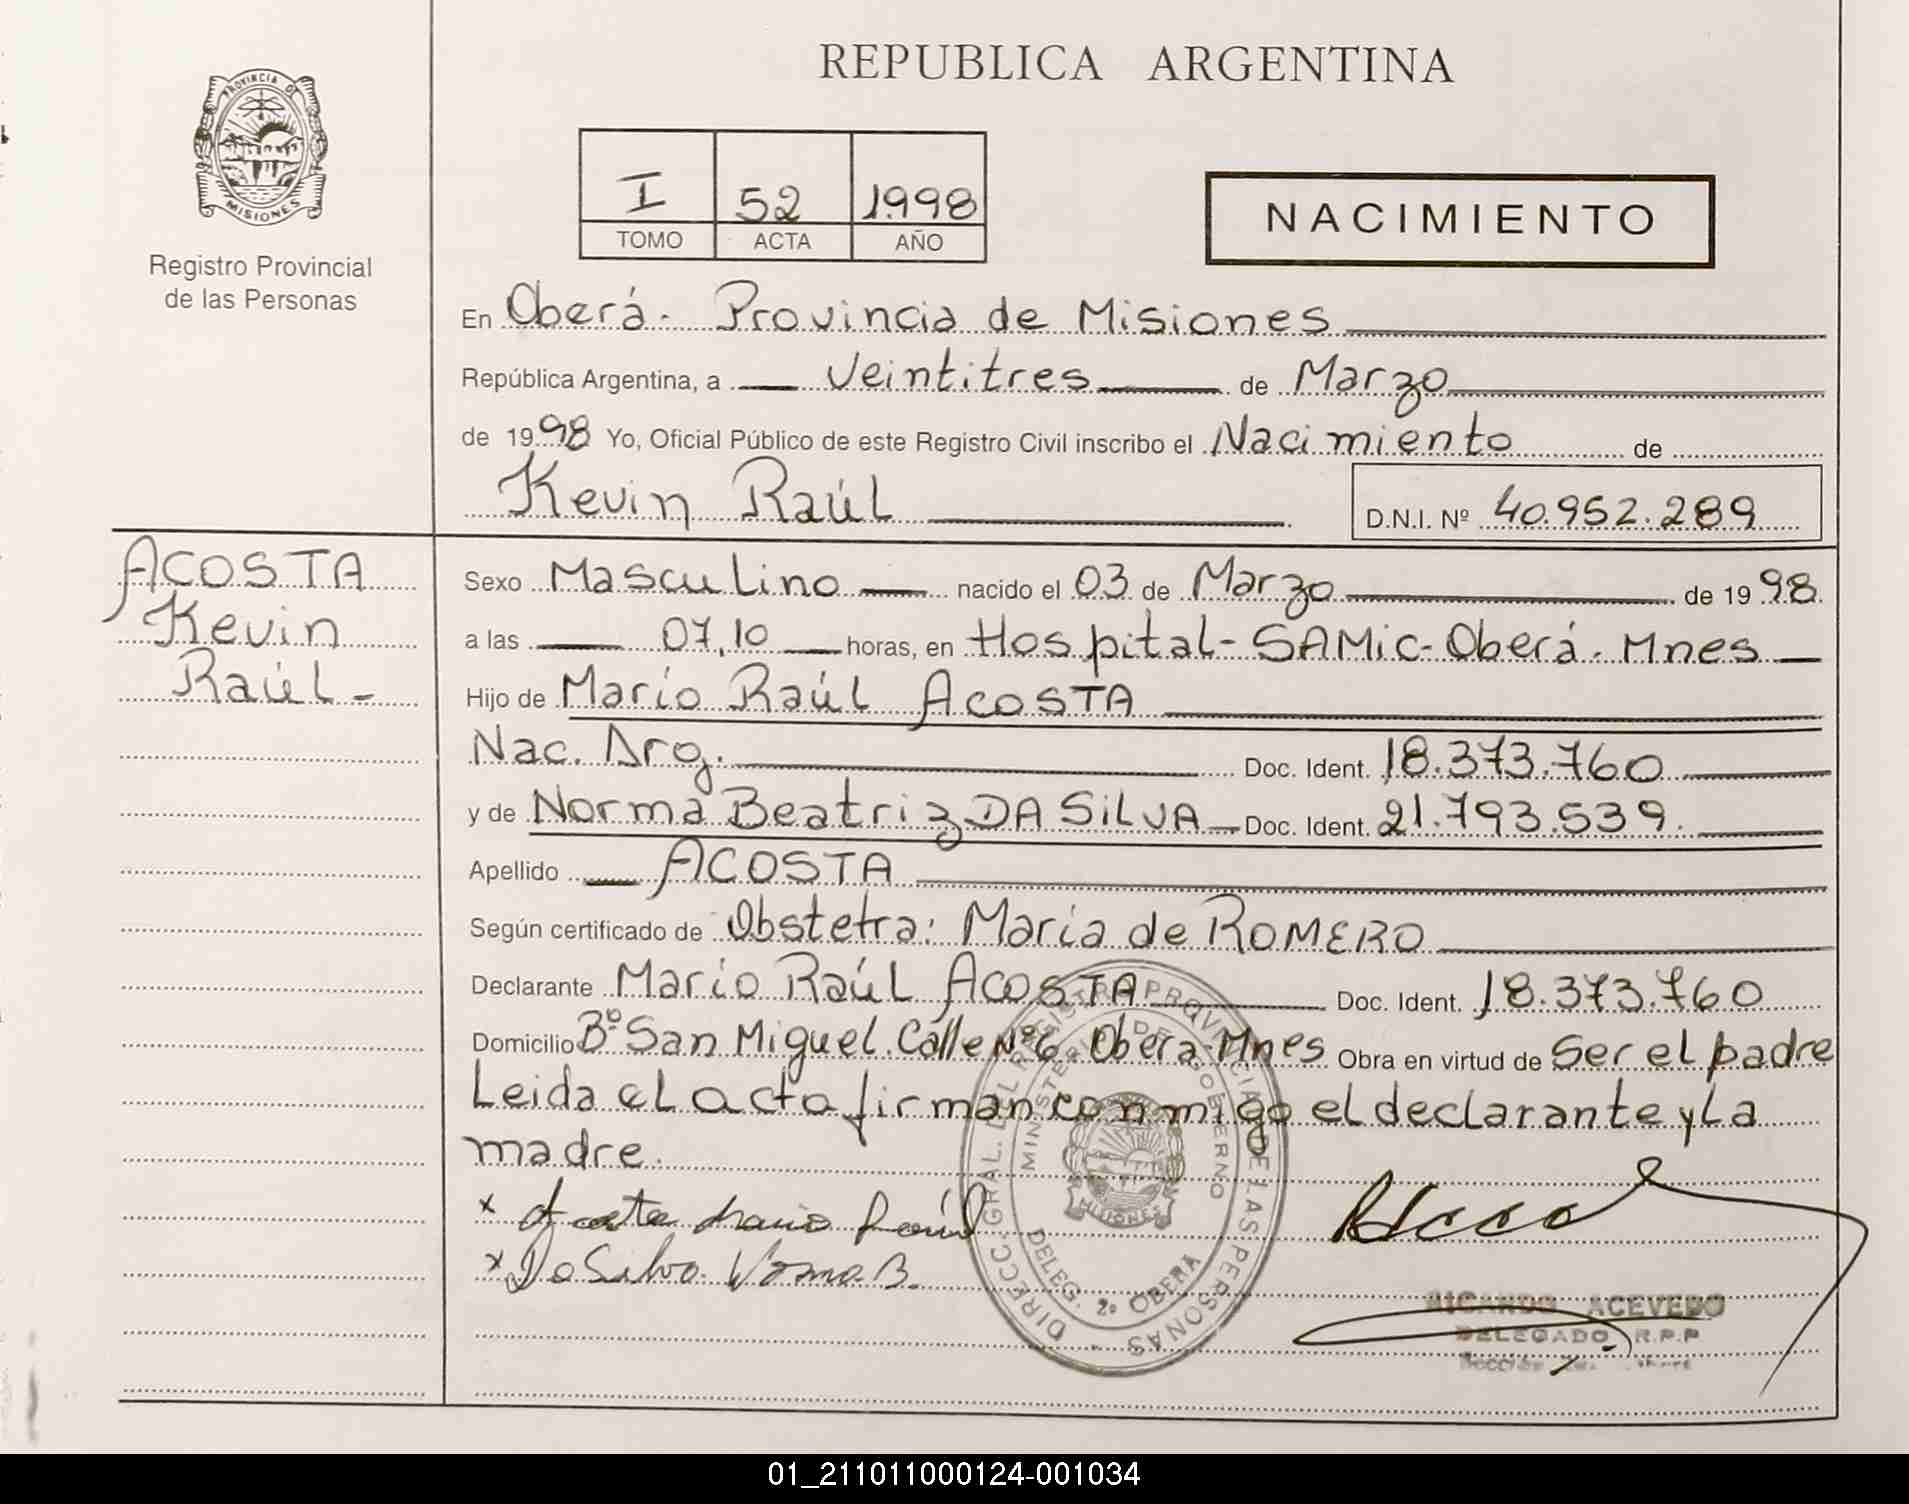 REPUBLICA ARGENTINA
PROVINCIA DE
MISIONES
Registro Provincial
de las Personas
I 52 1998
TOMO ACTA AÑO
NACIMIENTO
En Oberá. Provincia de Misiones
República Argentina, a Veintitres de Marzo
de 1998 Yo, Oficial Público de este Registro Civil inscribo el Nacimiento de
Kevin Raúl
D.N.I. Nº 40.952.289
ACOSTA
Kevin
Raúl-
Sexo Masculino nacido el 03 de Marzo de 1998.
a las 07,10 horas, en Hospital-SAMiC-Oberá. Mnes
Hijo de Mario Raúl ACOSTA
Nac. Arg. Doc. Ident. 18.373.760
y de Norma Beatriz DA SiLVA Doc. Ident. 21.793.539.
Apellido ACOSTA
Según certificado de Obstetra: María de ROMERO
Declarante Mario Raúl ACOSTA Doc. Ident. 18.373.760
Domicilio Bº San Miguel. Calle Nº6 Oberá-Mnes Obra en virtud de Ser el padre
Leida el acta firman conmigo el declarante y La
madre.
x Acosta Mario Raúl
x Da Silva Norma B.
DIRECC. GRAL. DEL REGISTRO PROVINCIAL DE LAS PERSONAS
MINISTERIO DE GOBIERNO
MISIONES
DELEG. 2º OBERA
RICARDO ACEVEDO
DELEGADO R.P.P
Sección
01_211011000124-001034